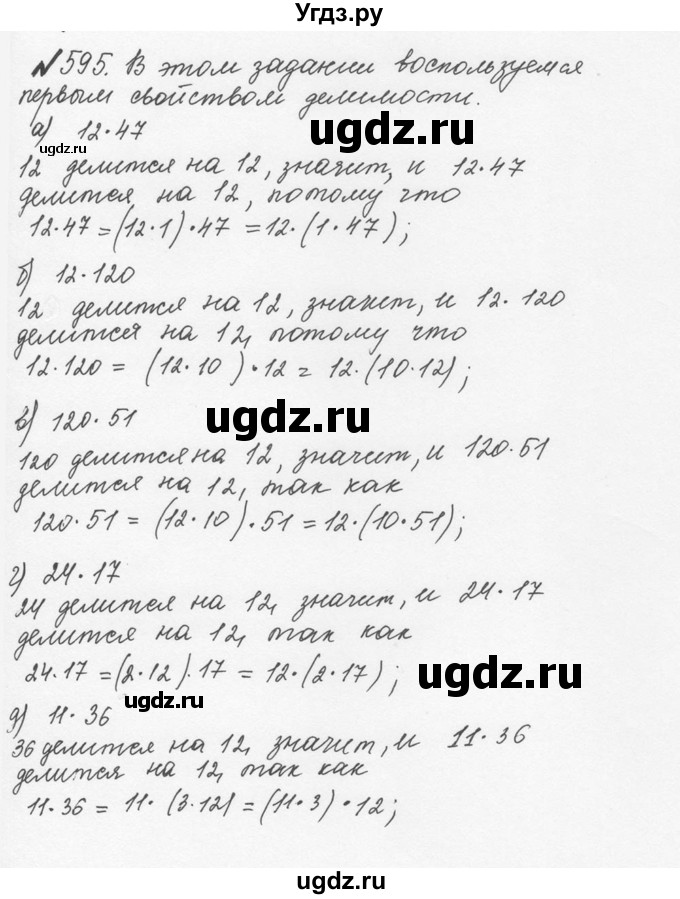 Угдз.ру
№595. В этом задании воспользуемся
первым свойством делимости.
а) 12·47
ugdz.ru
ugdz.ru
12 делится на 12, значит, и 12·47
делится на 12, потому что
12·47=(12·1)·47=12·(1·47);
б) 12·120
12 делится на 12, значит, и 12·120
делится на 12, потому что
12·120=(12·10)·12=12·(10·12);
в) 120·51
ugdz.ru
120 делится на 12, значит, и 120·51
делится на 12, так как
120·51=(12·10)·51=12·(10·51);
г) 24·17
24 делится на 12, значит, и 24·17
делится на 12, так как
24·17=(2·12)·17=12·(2·17);
ugdz.ru
ugdz.ru
д) 11·36
36 делится на 12, значит, и 11·36
делится на 12, так как
11·36=11·(3·12)=(11·3)·12;
ugdz.ru